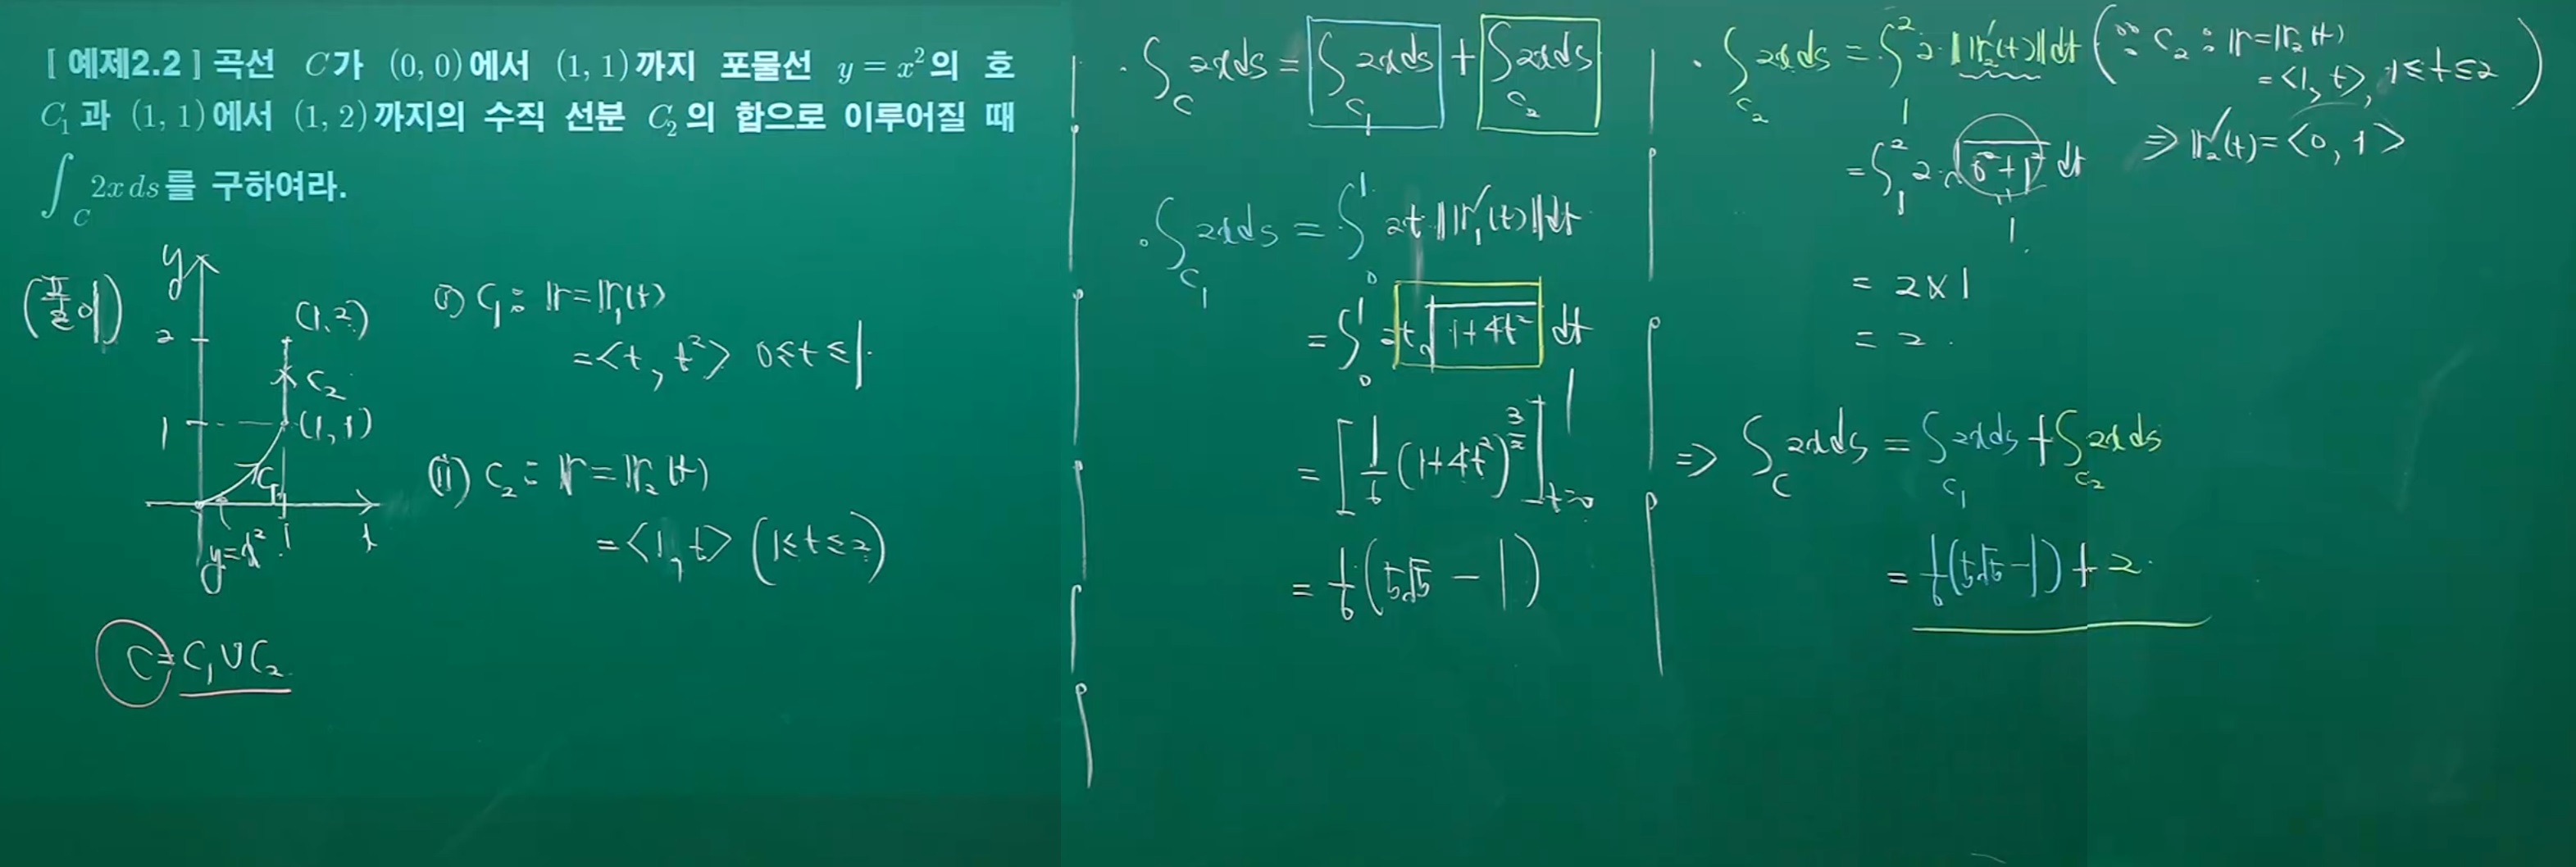 [ 예제2.2 ] 곡선 C가 (0, 0)에서 (1, 1)까지 포물선 y = x²의 호
C₁과 (1, 1)에서 (1, 2)까지의 수직 선분 C₂의 합으로 이루어질 때
∫_C 2x ds를 구하여라.
(풀이)
y
2
(1,2)
C₂
1
(1,1)
C₁
y=x²
1
x
(i) C₁ : r = r₁(t)
= <t, t²> 0≤t≤1.
(ii) C₂ : r = r₂(t)
= <1, t> (1≤t≤2)
C = C₁∪C₂
· ∫_C 2xds = ∫_C₁ 2xds + ∫_C₂ 2xds
· ∫_C₁ 2xds = ∫₀¹ 2t ‖r₁′(t)‖dt
= ∫₀¹ 2t√(1+4t²) dt
= [1/6 (1+4t²)^(3/2)]_{t=0}^1
= 1/6 (5√5 − 1)
· ∫_C₂ 2xds = ∫₁² 2·‖r₂′(t)‖dt (∵ C₂ : r = r₂(t)
= <1, t>, 1≤t≤2)
= ∫₁² 2·√(0²+1²) dt ⇒ r₂′(t) = <0, 1>
1.
= 2×1
= 2.
⇒ ∫_C 2xds = ∫_C₁ 2xds + ∫_C₂ 2xds
= 1/6 (5√5−1) + 2.